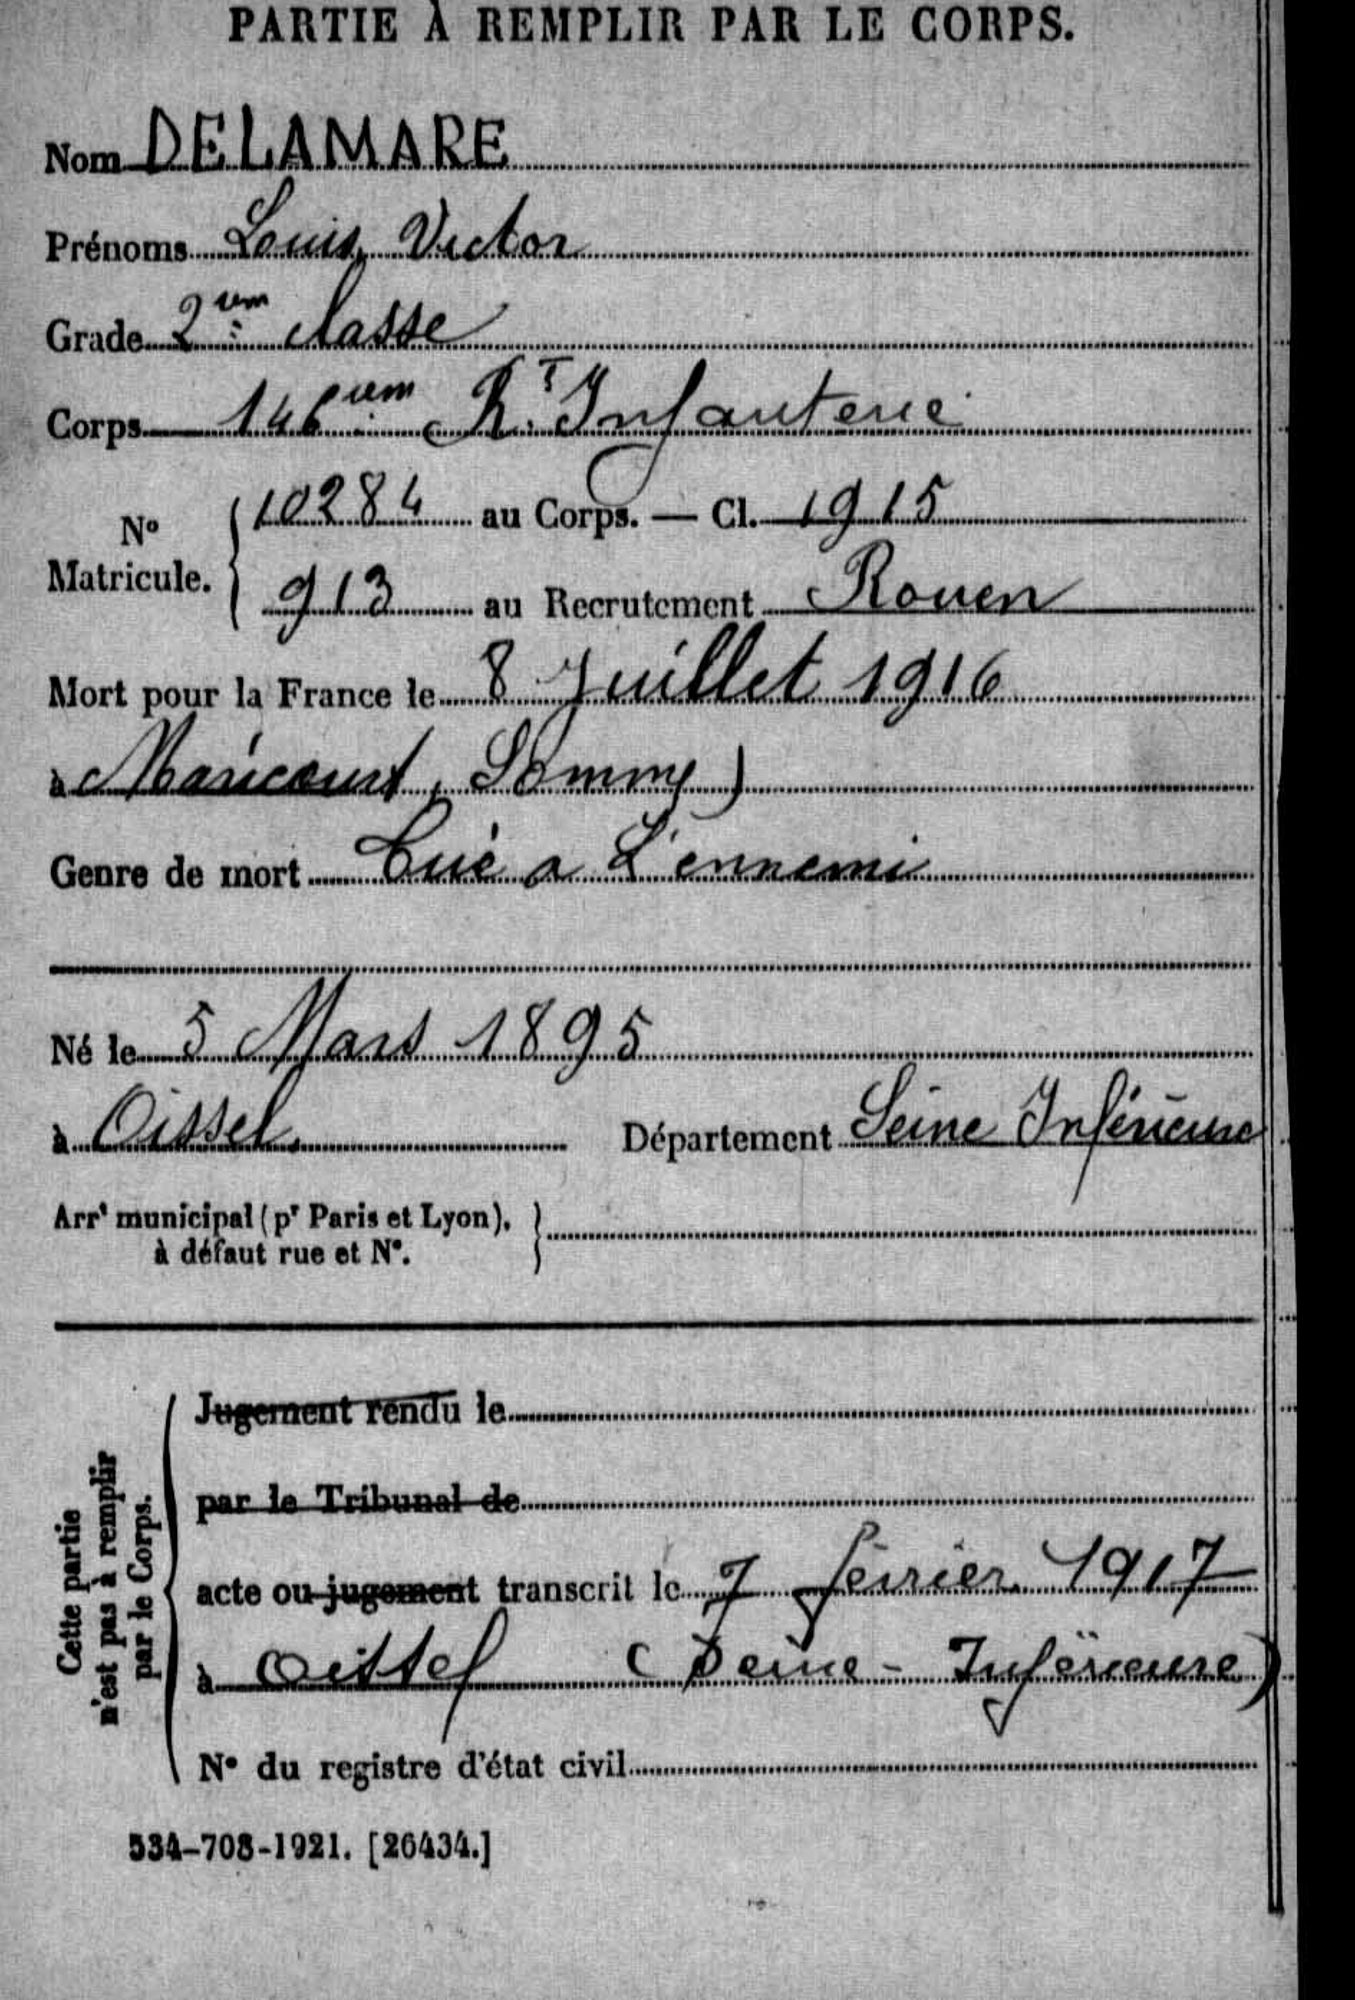 PARTIE À REMPLIR PAR LE CORPS.
Nom DELAMARE
Prénoms Louis, Victor
Grade 2iem classe
Corps 146iem Rt Infanterie
N° Matricule. { 10284 au Corps. — Cl. 1915
913 au Recrutement Rouen
Mort pour la France le 8 Juillet 1916
à Maricourt, Somme)
Genre de mort Tué a L'ennemi
Né le 5 Mars 1895
à Oissel. Département Seine Inférieure
Arrt municipal (pr Paris et Lyon), }
à défaut rue et N°.
Cette partie n'est pas à remplir par le Corps.
Jugement rendu le
par le Tribunal de
acte ou jugement transcrit le 7 février 1917
à Oissel (Seine-Inférieure)
N° du registre d'état civil
534-708-1921. [26434.]